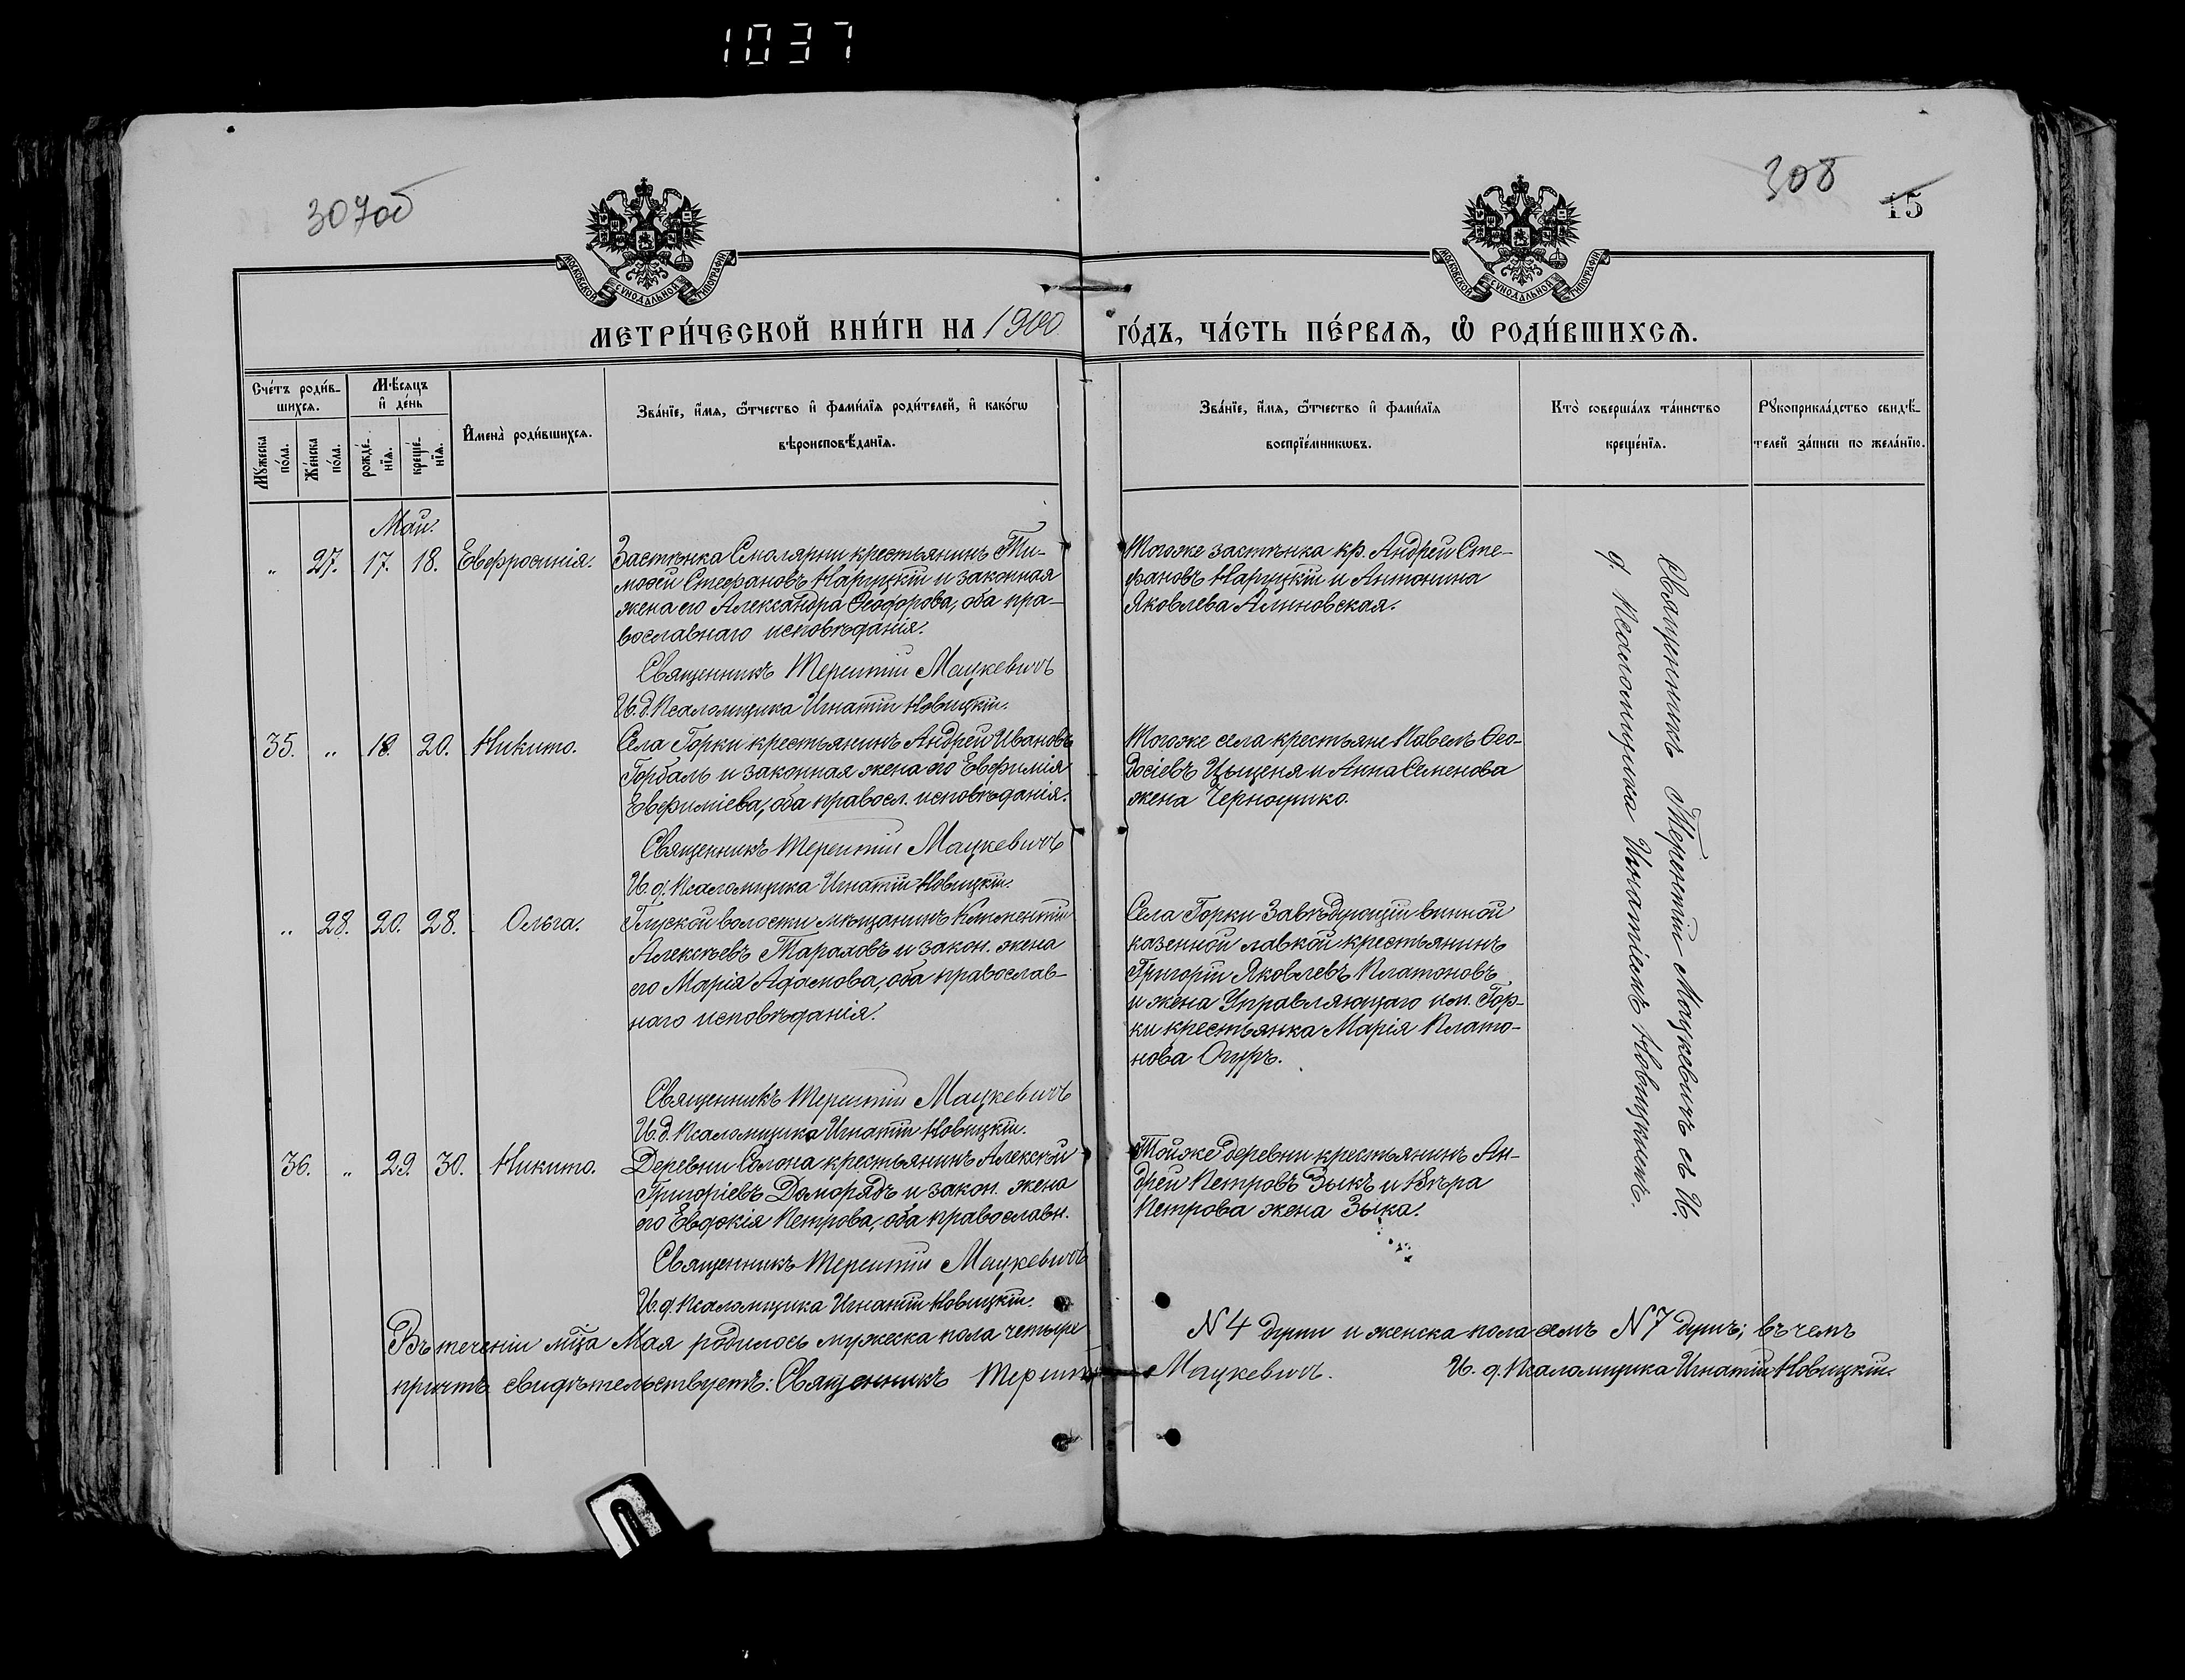 1037
307об
308
15
МОСКОВСКОЙ СѴНОДАЛЬНОЙ ТИПОГРАФІИ
МОСКОВСКОЙ СѴНОДАЛЬНОЙ ТИПОГРАФІИ
МЕТРИ́ЧЕСКОЙ КНИ́ГИ НА 1900 ГО́ДЪ, ЧА́СТЬ ПЕ́РВАѦ, Ѡ҆ РОДИ́ВШИХСѦ.
Сче́тъ роди́в-
шихсѧ.
Мѣ́сѧцъ
и҆ де́нь
Мꙋ́жеска
по́ла.
Же́нска
по́ла.
рожде́-
нїѧ.
креще́-
нїѧ.
И҆мена̀ роди́вшихсѧ.
Зва́нїе, и҆́мѧ, ѻ҆́тчество и҆ фами́лїѧ роди́телей, и҆ како́гѡ
вѣроисповѣ́данїѧ.
Зва́нїе, и҆́мѧ, ѻ҆́тчество и҆ фами́лїѧ
воспрїе́мникѡвъ.
Кто̀ соверша́лъ та́инство
креще́нїѧ.
Рꙋкоприкла́дство свидѣ́-
телей за́писи по жела́нїю.
Май.
„ 27. 17. 18. Евфросинія.
Застѣнка Смолярни крестьянинъ Ти-
моѳей Стефановъ Наруцкій и законная
жена его Александра Ѳеодорова, оба пра-
вославнаго исповѣданія.
Священникъ Терентій Мацкевичъ
И.д. Псаломщика Игнатій Новицкій.
Тогоже застѣнка кр. Андрей Сте-
фановъ Наруцкій и Антонина
Яковлева Алиновская.
35. „ 18. 20. Никита.
Села Горки крестьянинъ Андрей Ивановъ
Горбаль и законная жена его Евфимія
Евфиміева, оба правосл. исповѣданія.
Священникъ Терентій Мацкевичъ
И.д. Псаломщика Игнатій Новицкій.
Тогоже села крестьяне Павелъ Ѳео-
досіевъ Цыценя и Анна Семенова
жена
„ 28. 20. 28. Ольга.
Глуской волости мѣщанинъ Климентій
Алексѣевъ Тарасовъ и закон. жена
его Марія Адамова, оба православ-
наго исповѣданія.
Священникъ Терентій Мацкевичъ
И.д. Псаломщика Игнатій Новицкій.
Села Горки Завѣдующій винной
казенной лавкой крестьянинъ
Григорій Яковлевъ Платоновъ
и жена Управляющаго им. Гор-
ки крестьянка Марія Плато-
нова Огуръ.
36. „ 29. 30. Никита.
Деревни Солона крестьянинъ Алексѣй
Григоріевъ Доморадъ и закон. жена
его Евдокія Петрова, оба православн.
Священникъ Терентій Мацкевичъ
И.д. Псаломщика Игнатій Новицкій.
Тойже деревни крестьянинъ Ан-
дрей Петровъ Зыкъ и Вѣра
Петрова жена Зыка.
Священникъ Терентій Мацкевичъ съ И.
д. Псаломщика Игнатіемъ Новицкимъ.
Въ теченіи мца Мая родилось мужеска пола четыре N 4 души и женска пола семь N 7 душъ; въ чемъ
причтъ свидѣтельствуетъ: Священникъ Терентій Мацкевичъ. И. д. Псаломщика Игнатій Новицкій.